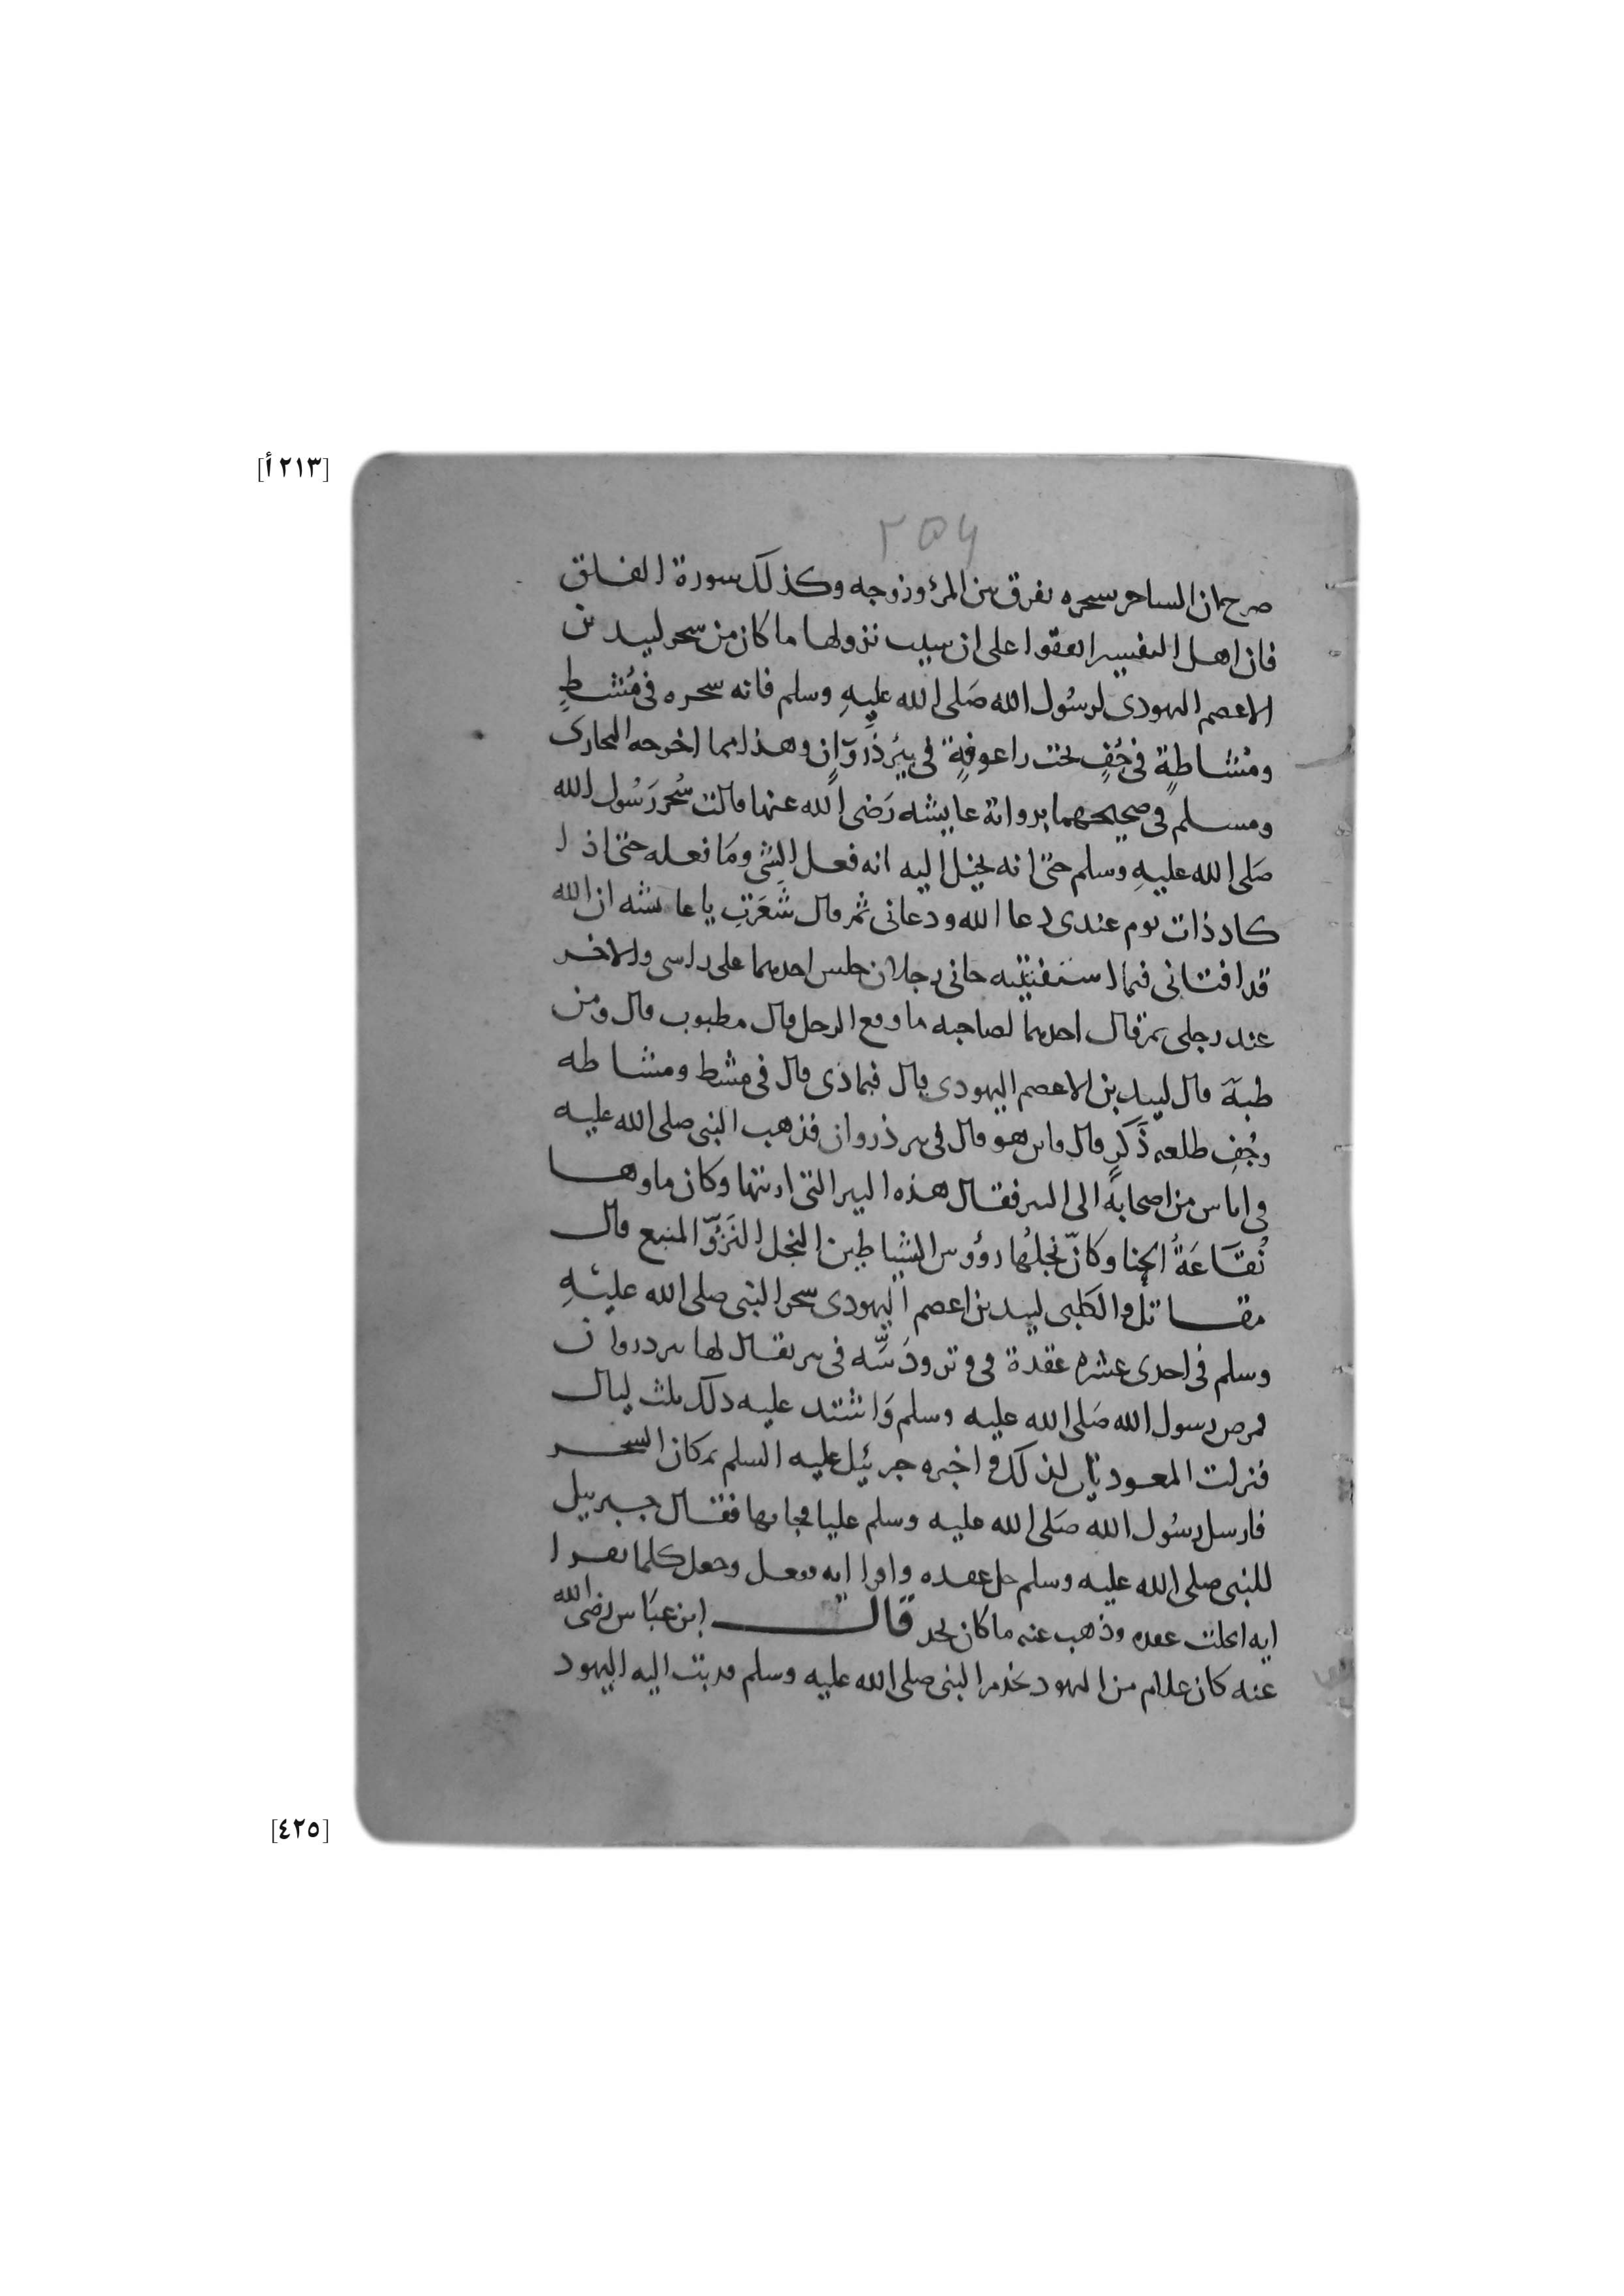 [٢١٣ أ]
٢٥٤
صرح بان الساحر بسحره يفرق بين المرؤ وزوجه وكذلك سورة الفلق
فان اهل التفسير اتفقوا على ان سبب نزولها ما كان من سحر لبيد بن
الاعصم اليهودى لرسُول الله صَلى الله عليهِ وسلم فانه سحره فى مُشطٍ
ومشاطةٍ فى جُفٍ تحت راعوفةٍ فى بئر ذَروَانِ وهذا مما اخرجه البخارى
ومسلم فى صحيحهما برواية عايشه رَضى الله عنها قالت سُحر رَسُول الله
صَلى الله عليهِ وسلم حتى انه يخيل اليه انه فعل الشى ومَا فعله حتى اذا
كان ذات يوم عندى دعا الله ودعانى ثم قال شَعَرتِ يا عايشه ان الله
قد افتانى فيما استفتيته جانى رجلان جلس احدهما على راسى والاخر
عند رجلى ثم قال احدهما لصاحبه ما وجع الرجل قال مطبوب قال ومن
طبهَ قال لبيد بن الاعصم اليهودى قال فيما ذى قال فى مشط ومشاطه
وجُفِ طلعه ذَكَرٍ قال فاين هو قال فى بير ذروان فذهب النبى صلى الله عليه
فى اناس من اصحابه الى البير فقال هذه البير التى اريتها وكان ماوها
نُقَاعَةُ الحنا وكانّ نخلُها رؤوس الشياطين النخل النَزُوّ المنبع قال
مقاتل والكلبى لبيد بن اعصم اليهودى سحر النبى صلى الله عليْهِ
وسلم فى احدى عشره عقدة فى وتر ودَسَّه فى بير يقال لها بير ذروان
فمرض رسول الله صَلى الله عليه وسلم وَاشتد عليه ذلك ثلث ليال
فنزلت المعوذتان لذلك واخبره جبرئيل عليه السلم بمكان السحر
فارسل رسُول الله صَلى الله عليه وسلم عليا فجا بها فقال جبريل
للنبى صلى الله عليه وسلم حل عقده واقرا ايه ففعل وجعل كلما يقرا
ايه انحلت عقده وذهب عنه ما كان يجد قال ابن عبَاس رضى الله
عنه كان غلام من اليهود يخدم النبى صلى الله عليه وسلم فدبت اليه اليهود
[٤٢٥]